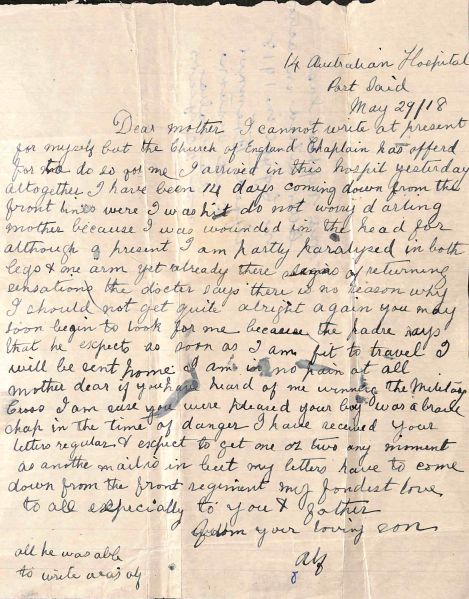 14 Australian Hospital
Port Said
May 29/18
Dear mother I cannot write at present
for myself but the Church of England Chaplain has offerd
for to do so for me I arrived in this hospit yesterday
altogether I have been 14 days coming down from the
front lines were I was hit do not worry darling
mother because I was wounded in the head for
although a present I am partly paralysed in both
legs & one arm yet already there signs of returning
sensations the docter says there is no reason why
I should not get quite alright again you may
soon begin to look for me because the padre says
that he expects as soon as I am fit to travel I
will be sent home I am in no pain at all
mother dear if you have heard of me winning the Military
Cross I am sure you were pleased your boy was a brave
chap in the time of danger I have received your
letters regular & expect to get one or two any moment
as anothe mail is in but my letters have to come
down from the front regiment my fondest love
to all especially to you & father
from your loving son
Alf
all he was able
to write was alf